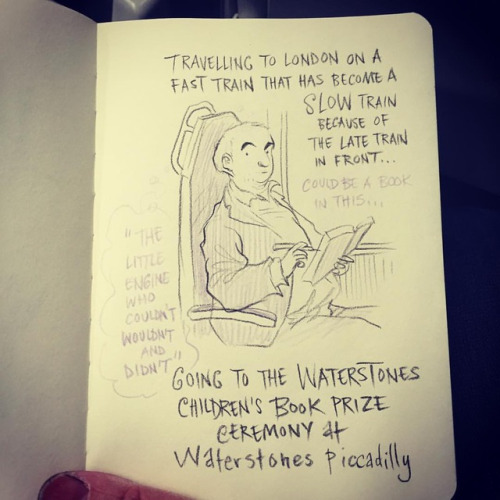 TRAVELLING TO LONDON ON A
FAST TRAIN THAT HAS BECOME A
SLOW TRAIN
BECAUSE OF
THE LATE TRAIN
IN FRONT...
COULD BE A BOOK
IN THIS...
"THE
LITTLE
ENGINE
WHO
COULDN'T
WOULDN'T
AND
DIDN'T"
GOING TO THE WATERSTONES
CHILDREN'S BOOK PRIZE
CEREMONY at
Waterstones Piccadilly